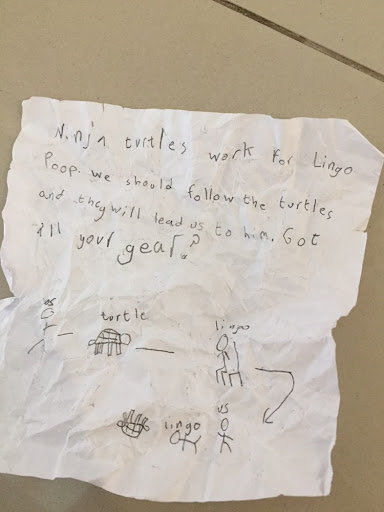 Ninja turtles work for Lingo
Poop. we should follow the turtles
and they will lead us to him. Got
all your gear?
us
turtle
lingo
lingo
us